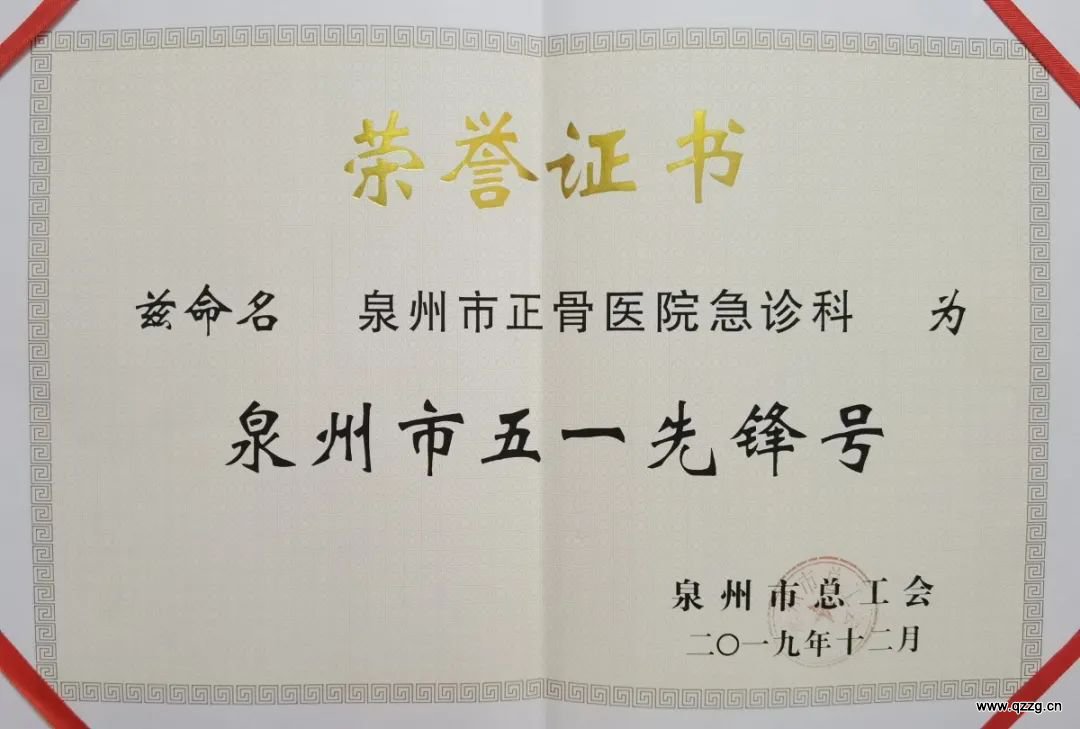 荣誉证书
兹命名 泉州市正骨医院急诊科 为
泉州市五一先锋号
泉州市总工会
二〇一九年十二月
www.qzzg.cn